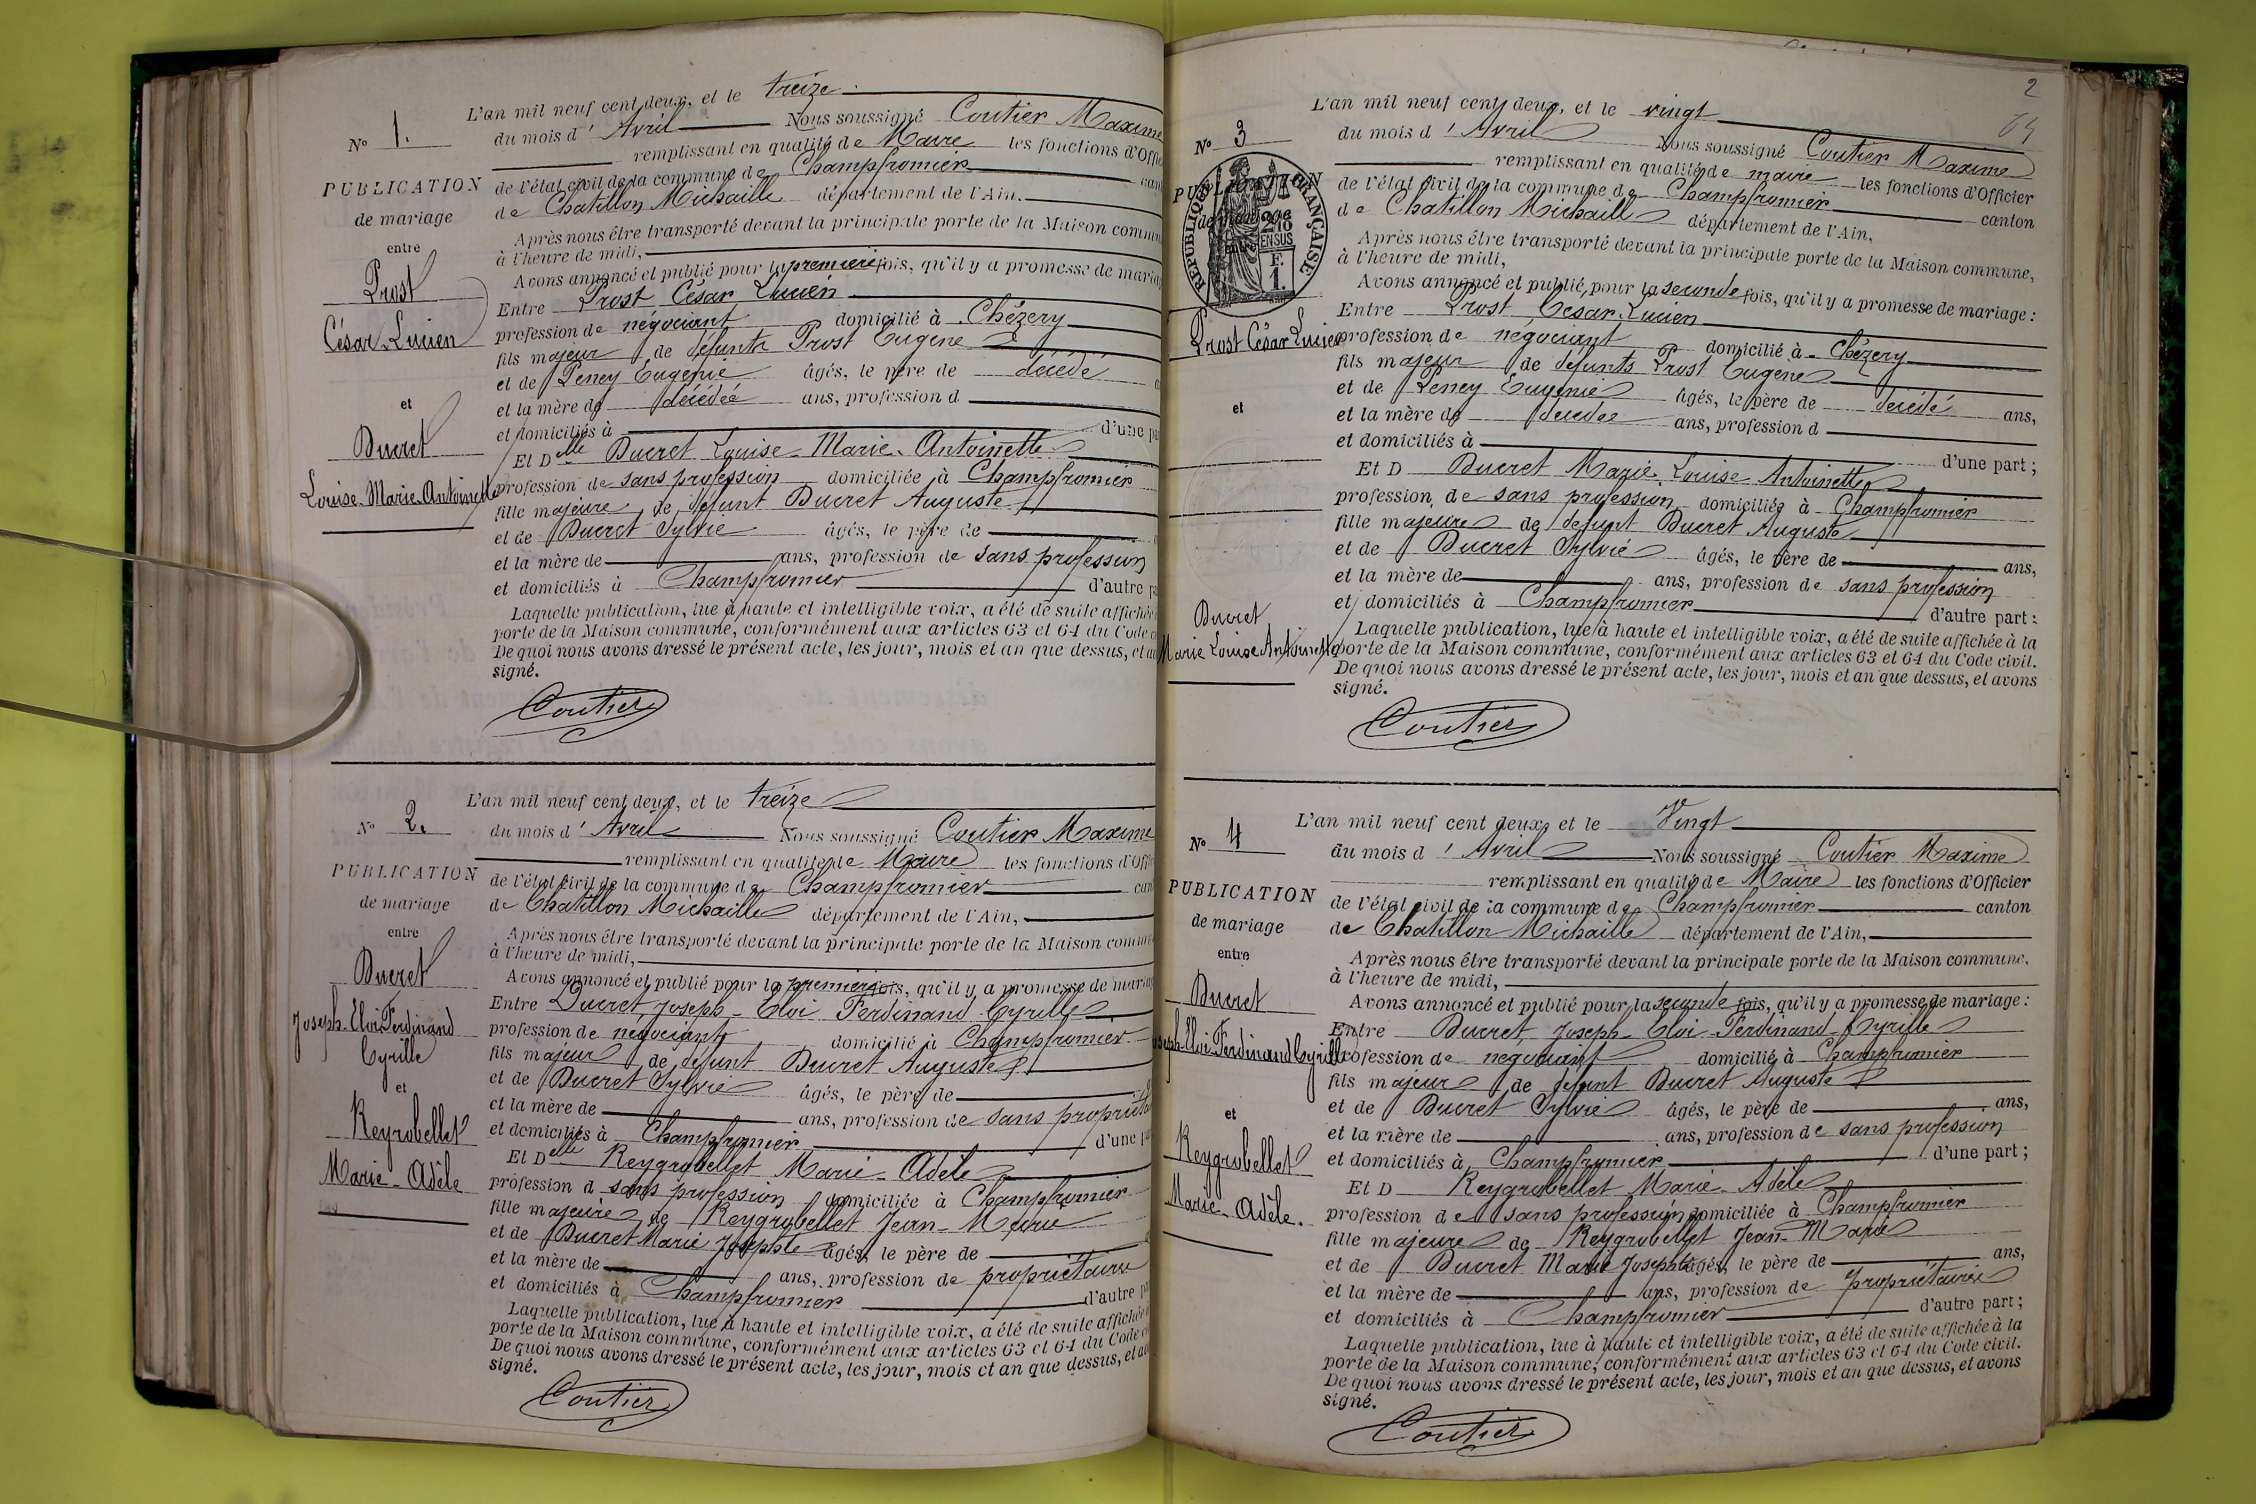 N° 1.
PUBLICATION
de mariage
entre
Prost
César Lucien
et
Ducret
Louise Marie Antoinette
L'an mil neuf cent deux, et le treize
du mois d' Avril Nous soussigné Coutier Maxime
remplissant en qualité de Maire les fonctions d'Offic
de l'état civil de la commune de Champfromier can
de Chatillon Michaille département de l'Ain.
Après nous être transporté devant la principale porte de la Maison commun
à l'heure de midi,
Avons annoncé et publié pour la première fois, qu'il y a promesse de maria
Entre Prost César Lucien
profession de négociant domicilié à Chézery
fils majeur de défunts Prost Eugène
et de Peney Eugénie âgés, le père de décédé
et la mère de décédée ans, profession d
et domiciliés à d'une pa
Et Delle Ducret Louise-Marie-Antoinette
profession de sans profession domiciliée à Champfromier
fille majeure de défunt Ducret Auguste
et de Ducret Sylvie âgés, le père de
et la mère de ans, profession de sans profession
et domiciliés à Champfromier d'autre pa
Laquelle publication, lue à haute et intelligible voix, a été de suite affichée
porte de la Maison commune, conformément aux articles 63 et 64 du Code c
De quoi nous avons dressé le présent acte, les jour, mois et an que dessus, et av
signé.
Coutier
N° 2.
PUBLICATION
de mariage
entre
Ducret
Joseph-Eloi Ferdinand
Cyrille
et
Reygrobellet
Marie-Adèle
L'an mil neuf cent deux, et le treize
du mois d' Avril Nous soussigné Coutier Maxime
remplissant en qualité de Maire les fonctions d'Offi
de l'état civil de la commune de Champfromier can
de Chatillon Michaille département de l'Ain,
Après nous être transporté devant la principale porte de la Maison commune
à l'heure de midi,
Avons annoncé et publié pour la première fois, qu'il y a promesse de maria
Entre Ducret, Joseph-Eloi Ferdinand Cyrille
profession de négociant domicilié à Champfromier
fils majeur de défunt Ducret Auguste
et de Ducret Sylvie âgés, le père de
et la mère de ans, profession de sans propriéta
et domiciliés à Champfromier d'une pa
Et Delle Reygrobellet Marie-Adèle
profession d sans profession domiciliée à Champfromier
fille majeure de Reygrobellet Jean-Marie
et de Ducret Marie Josephte âgés, le père de
et la mère de ans, profession de propriétaires
et domiciliés à Champfromier d'autre pa
Laquelle publication, lue à haute et intelligible voix, a été de suite affichée
porte de la Maison commune, conformément aux articles 63 et 64 du Code c
De quoi nous avons dressé le présent acte, les jour, mois et an que dessus, et av
signé.
Coutier
2
N° 3
PUBLICATION
de mariage
entre
RÉPUBLIQUE FRANÇAISE
2/10
EN SUS
F.
1.
Prost César Lucien
et
Ducret
Marie Louise Antoinette
L'an mil neuf cent deux, et le vingt
du mois d' Avril Nous soussigné Coutier Maxime
remplissant en qualité de maire les fonctions d'Officier
de l'état civil de la commune de Champfromier canton
de Chatillon Michaille département de l'Ain,
Après nous être transporté devant la principale porte de la Maison commune,
à l'heure de midi,
Avons annoncé et publié, pour la seconde fois, qu'il y a promesse de mariage :
Entre Prost César Lucien
profession de négociant domicilié à Chézery
fils majeur de défunts Prost Eugène
et de Peney Eugénie âgés, le père de décédé ans,
et la mère de décédée ans, profession d
et domiciliés à d'une part ;
Et D Ducret Marie Louise Antoinette
profession de sans profession domiciliée à Champfromier
fille majeure de défunt Ducret Auguste
et de Ducret Sylvie âgés, le père de ans,
et la mère de ans, profession de sans profession
et domiciliés à Champfromier d'autre part :
Laquelle publication, lue à haute et intelligible voix, a été de suite affichée à la
porte de la Maison commune, conformément aux articles 63 et 64 du Code civil.
De quoi nous avons dressé le présent acte, les jour, mois et an que dessus, et avons
signé.
Coutier
N° 4
PUBLICATION
de mariage
entre
Ducret
Joseph-Eloi Ferdinand Cyrille
et
Reygrobellet
Marie-Adèle.
L'an mil neuf cent deux, et le Vingt
du mois d' Avril Nous soussigné Coutier Maxime
remplissant en qualité de Maire les fonctions d'Officier
de l'état civil de la commune de Champfromier canton
de Chatillon Michaille département de l'Ain,
Après nous être transporté devant la principale porte de la Maison commune,
à l'heure de midi,
Avons annoncé et publié pour la seconde fois, qu'il y a promesse de mariage :
Entre Ducret, Joseph-Eloi Ferdinand, Cyrille
profession de négociant domicilié à Champfromier
fils majeur de défunt Ducret Auguste
et de Ducret Sylvie âgés, le père de ans,
et la mère de ans, profession de sans profession
et domiciliés à Champfromier d'une part ;
Et D Reygrobellet Marie-Adèle
profession de sans profession domiciliée à Champfromier
fille majeure de Reygrobellet Jean-Marie
et de Ducret Marie Josephte âgés, le père de ans,
et la mère de ans, profession de propriétaires
et domiciliés à Champfromier d'autre part ;
Laquelle publication, lue à haute et intelligible voix, a été de suite affichée à la
porte de la Maison commune, conformément aux articles 63 et 64 du Code civil.
De quoi nous avons dressé le présent acte, les jour, mois et an que dessus, et avons
signé.
Coutier